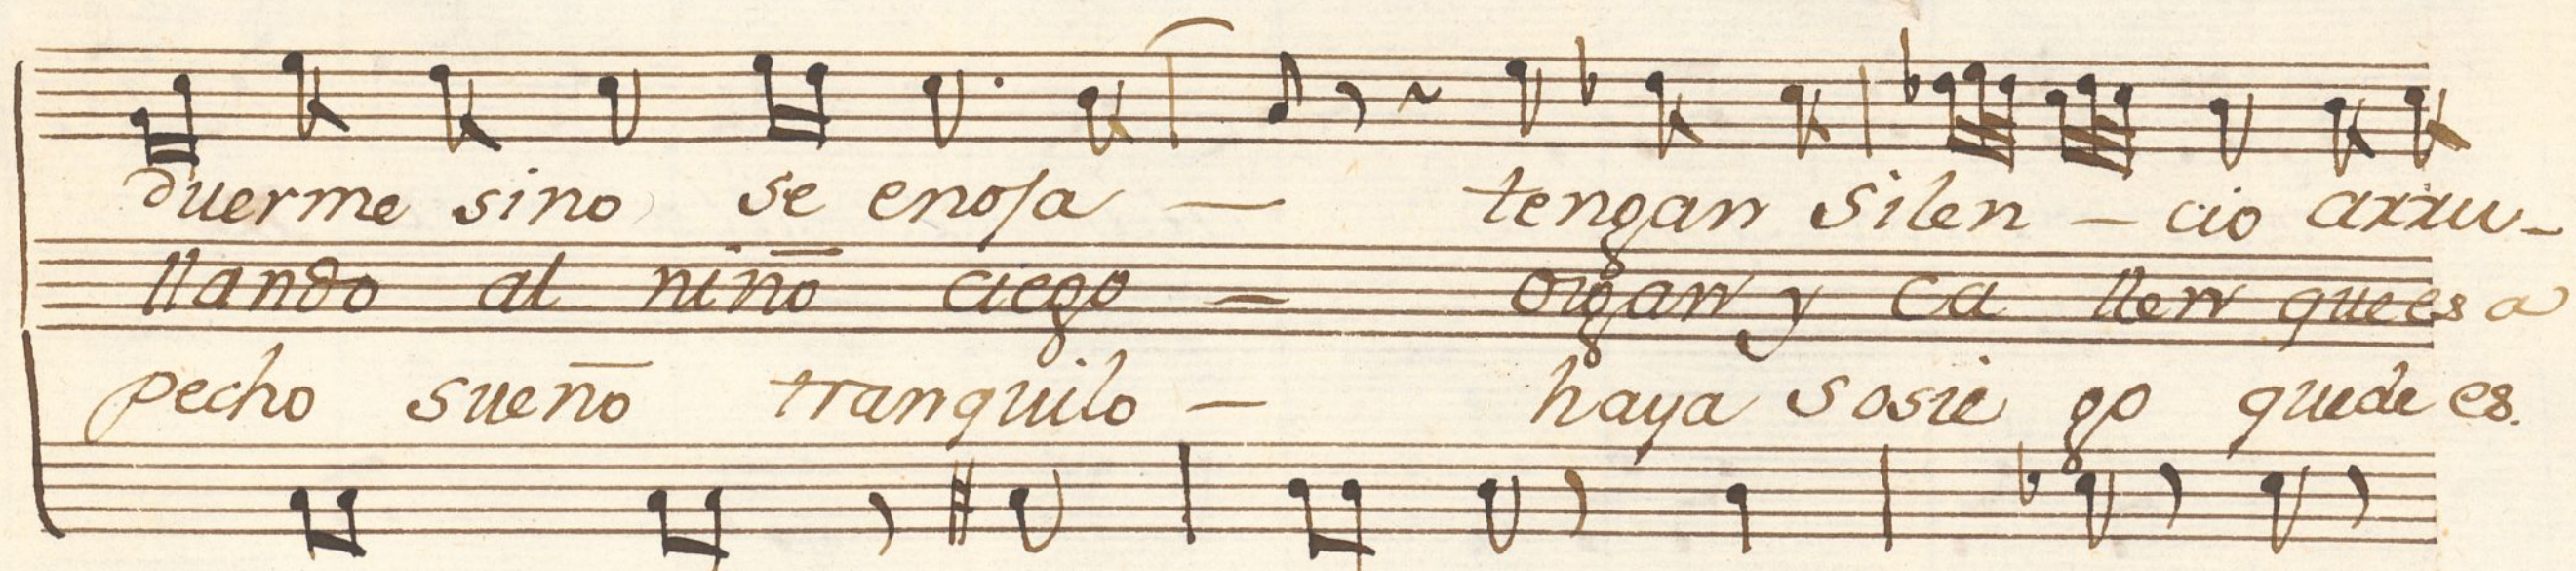 duerme sino se enoja — tengan silen - cio arru-
llando al niño ciego — oigan y ca llen que es a
pecho sueño tranquilo — haya sosie go quede es.